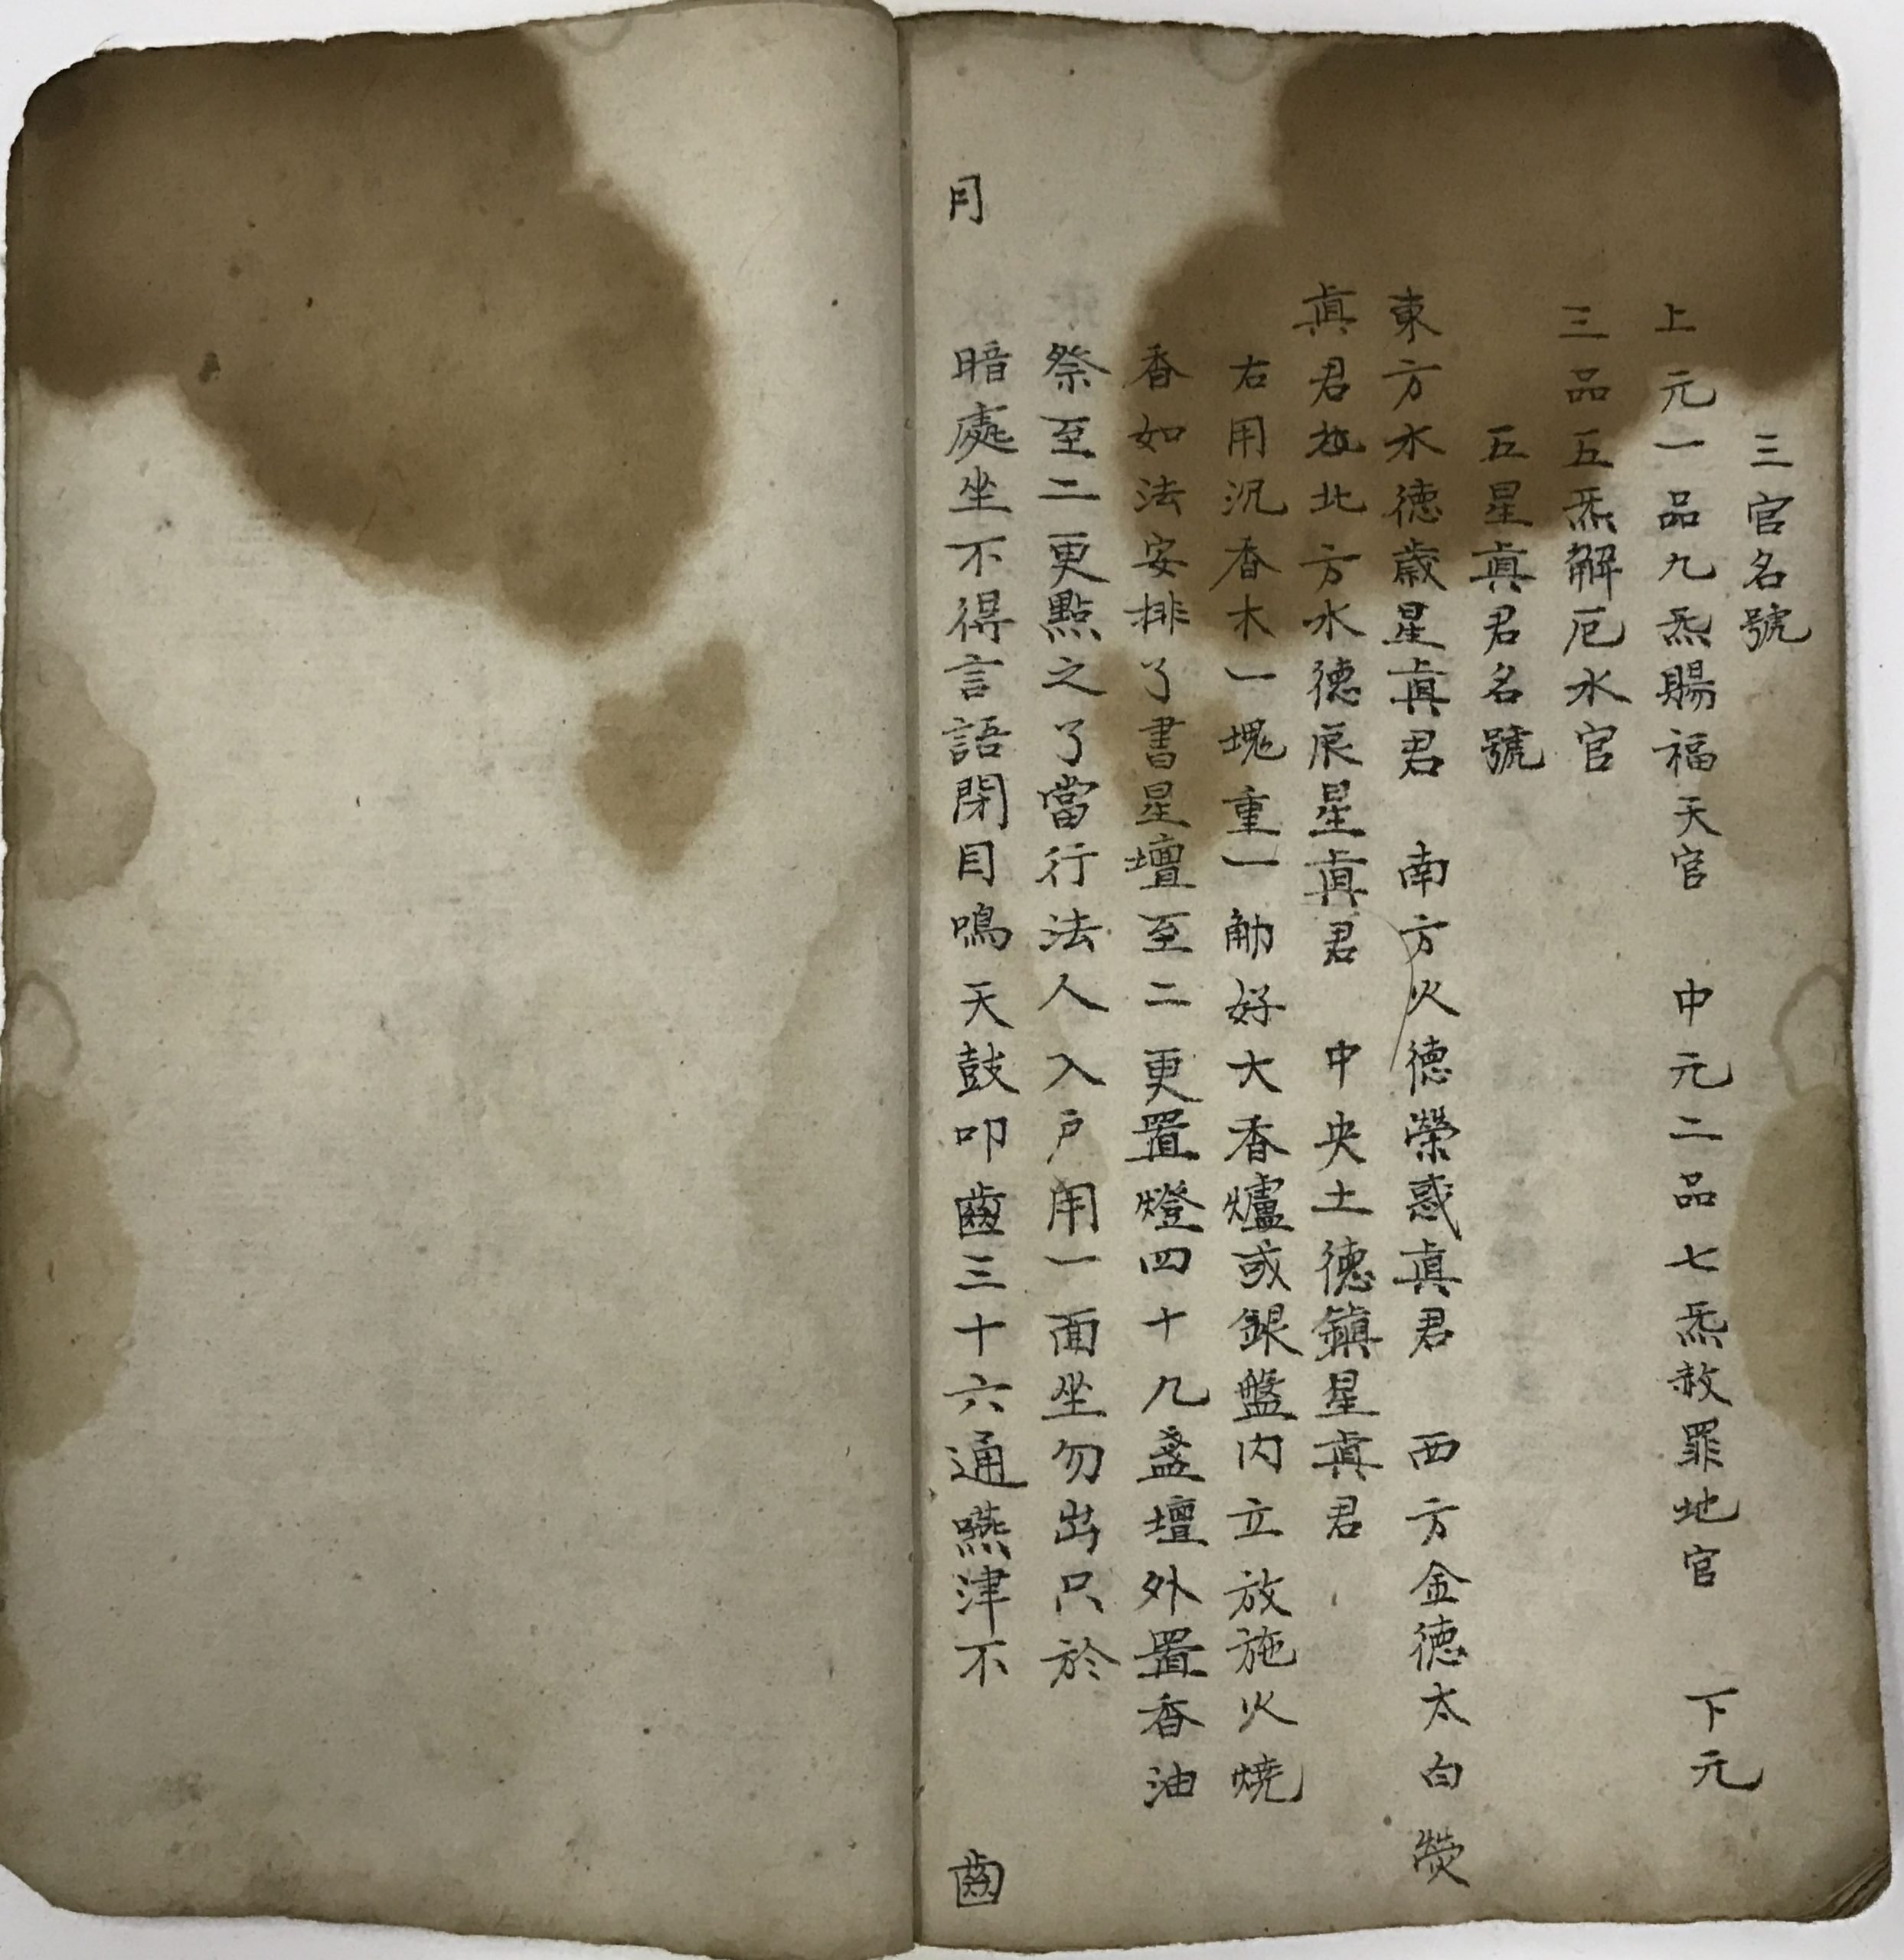 三官名號
上元一品九炁賜福天官　中元二品七炁赦罪地官　下元
三品五炁解厄水官
五星眞君名號
東方水德歲星眞君　南方火德榮惑眞君　西方金德太白　熒
眞君北方水德辰星眞君　中央土德鎭星眞君
右用沉香木一塊重一觔好大香爐或銀盤內立放施火燒
香如法安排了書星壇至二更置燈四十九盞壇外置香油
祭至二更點之了當行法人入戶用一面坐勿出只於
暗處坐不得言語閉目鳴天鼓叩齒三十六通嚥津不
月
齒